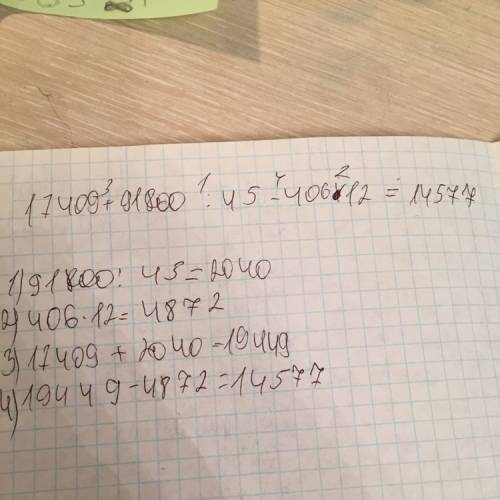 17409 + 91800 : 45 - 406 · 12 = 14577
1) 91800 : 45 = 2040
2) 406 · 12 = 4872
3) 17409 + 2040 = 19449
4) 19449 - 4872 = 14577